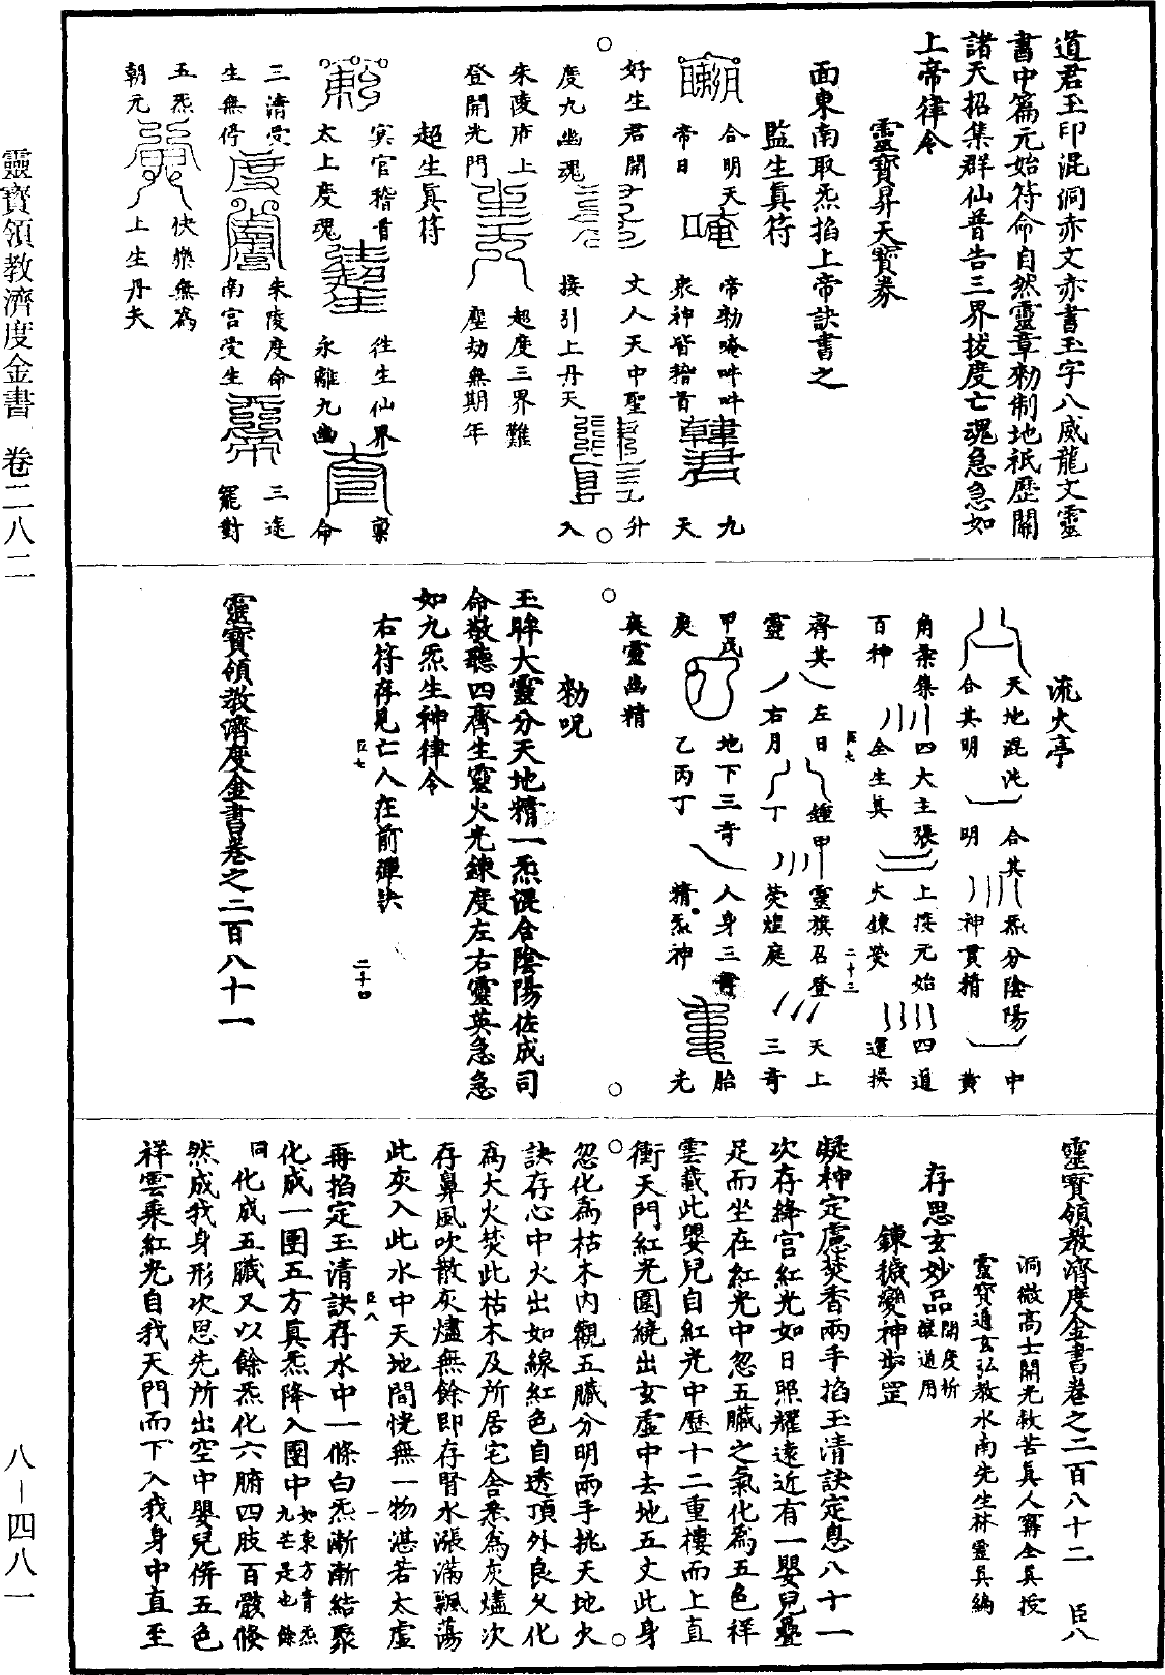 道君玉印混洞赤文赤書玉字八威龍文靈
書中篇元始符命自然靈章勑制地祇歷關
諸天招集群仙普告三界拔度亡魂急急如
上帝律令
靈寶昇天寶券
面東南取炁掐上帝訣書之
監生真符
合明天 帝勑唵吽吽 九
帝日 衆神皆稽首 天
好生君開 丈人天中聖 升
度九幽魂 接引上丹天 入
朱陵府上 超度三界難
登開光門 歷劫無期年
超生真符
冥官稽首 往生仙界 稟
太上度魂 永離九幽 命
三清受 朱陵度命 三途
生無停 南宮受生 罷對
五炁 快樂無爲
朝元 上生丹天
流火亭
天地混沌 合其 炁分陰陽 中
合其明 明 神貫精 黃
角条集 四大主張 上接元始 四道
百神 全生真 火鍊熒 運換
齊其 左日 鍾甲 靈旗召登 天上
靈 右月 丁 熒煌庭 三奇
甲戊 地下三奇 人身三 胎
庚 乙丙丁 精炁神 光
爽靈幽精
勑呪
玉眸大靈分天地精一炁混合陰陽佐成司
命敬聽四齊生靈火光鍊度左右靈英急急
如九炁生神律令
右符存見亡人在前彈訣
靈寶領教濟度金書卷之二百八十一
靈寶領教濟度金書卷之二百八十二 臣八
洞微高士開光救苦真人寗全真授
靈寶通玄弘教水南先生林靈真編
存思玄妙品 開度祈禳通用
鍊穢變神步罡
凝神定慮焚香兩手掐玉清訣定息八十一
次存絳宮紅光如日照耀遠近有一嬰兒疊
足而坐在紅光中忽五臟之氣化爲五色祥
雲載此嬰兒自紅光中歷十二重樓而上直
衝天門紅光圍繞出玄虛中去地五丈此身
忽化爲枯木內觀五臟分明兩手挑天地火
訣存心中火出如線紅色自透頂外良久化
爲大火焚此枯木及所居宅舍悉爲灰燼次
存鼻風吹散灰燼無餘即存腎水漲滿飄蕩
此灰入此水中天地間恍無一物湛若太虛
再掐定玉清訣存水中一條白炁漸漸結聚
化成一團五方真炁降入團中 如東方青炁九芒是也餘
同 化成五臟又以餘炁化六腑四肢百骸倏
然成我身形次思先所出空中嬰兒併五色
祥雲乘紅光自我天門而下入我身中直至
靈寶領教濟度金書 卷二八二
八－四八一